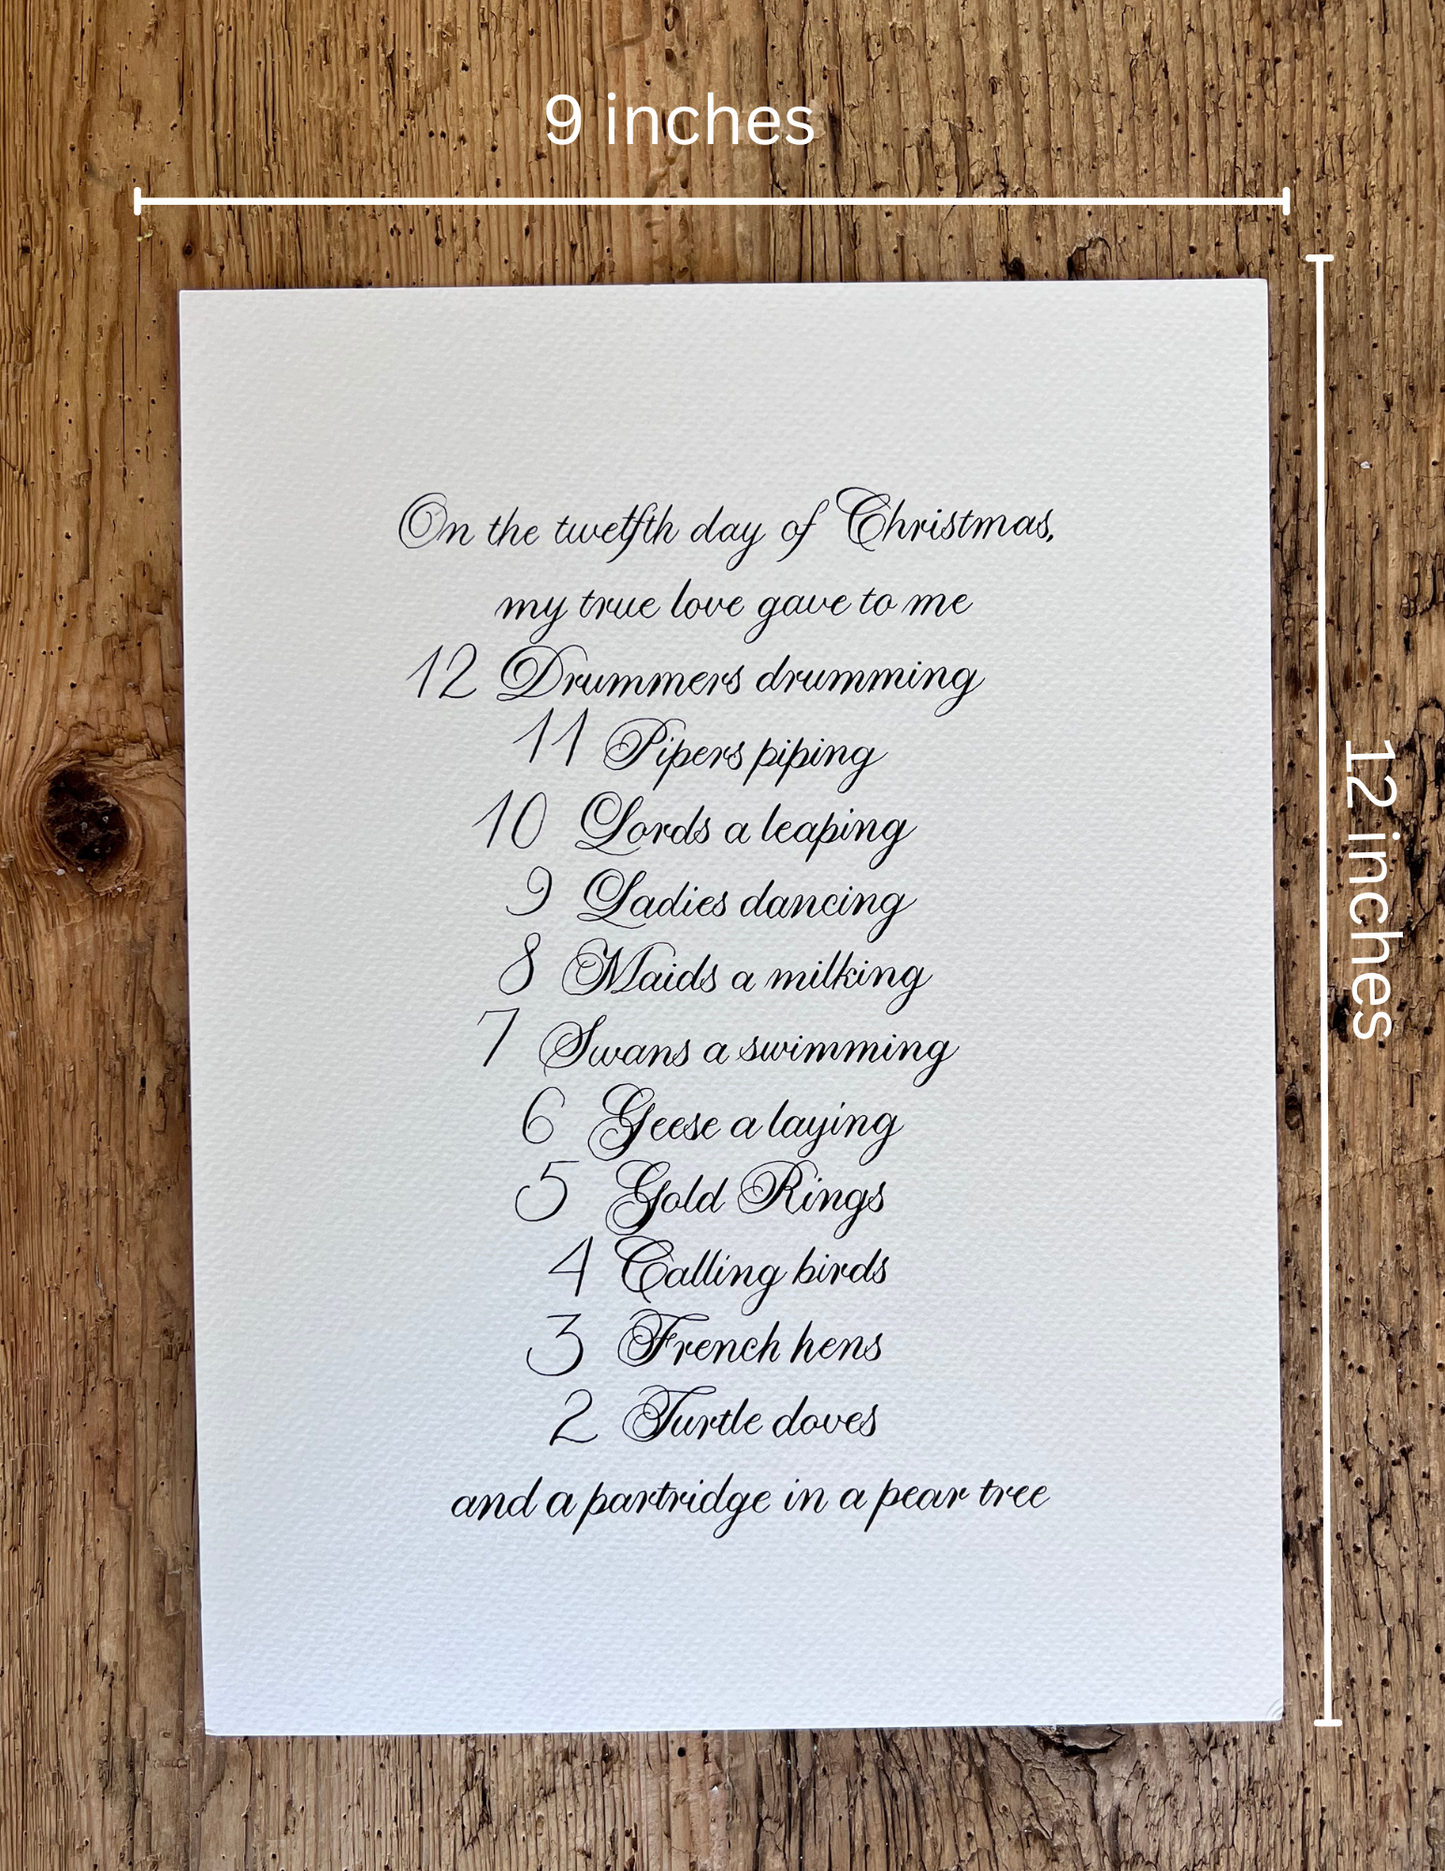 9 inches
On the twelfth day of Christmas,
my true love gave to me
12 Drummers drumming
11 Pipers piping
10 Lords a leaping
9 Ladies dancing
8 Maids a milking
7 Swans a swimming
6 Geese a laying
5 Gold Rings
4 Calling birds
3 French hens
2 Turtle doves
and a partridge in a pear tree
12 inches